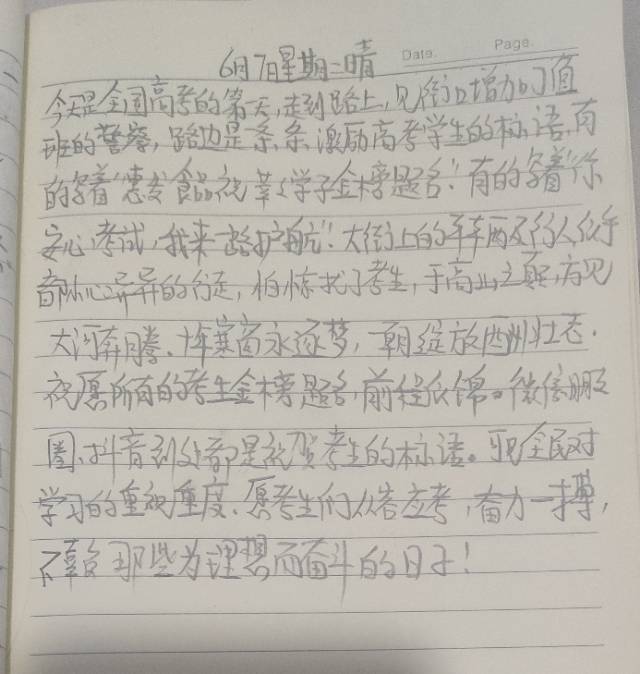 Date. Page.
6月7日星期二晴
今天是全国高考的第一天,走到路上,见街口增加了值
班的警察,路边是条条激励高考学生的标语,有
的写着"惠发食品祝莘莘学子金榜题名!"有的写着"你
安心考试,我来一路护航!"大街上的车辆及行人似乎
都小心翼异的行走,怕惊扰了考生,于高山之巅,方见
大河奔腾.十年寒窗永逐梦,一朝绽放 壮志.
祝愿所有的考生金榜题名,前程似锦。微信朋友
圈、抖音到处都是祝贺考生的标语。可见全民对
学习的重视重度、愿考生们从容应考,奋力一搏,
不辜负那些为理想而奋斗的日子!